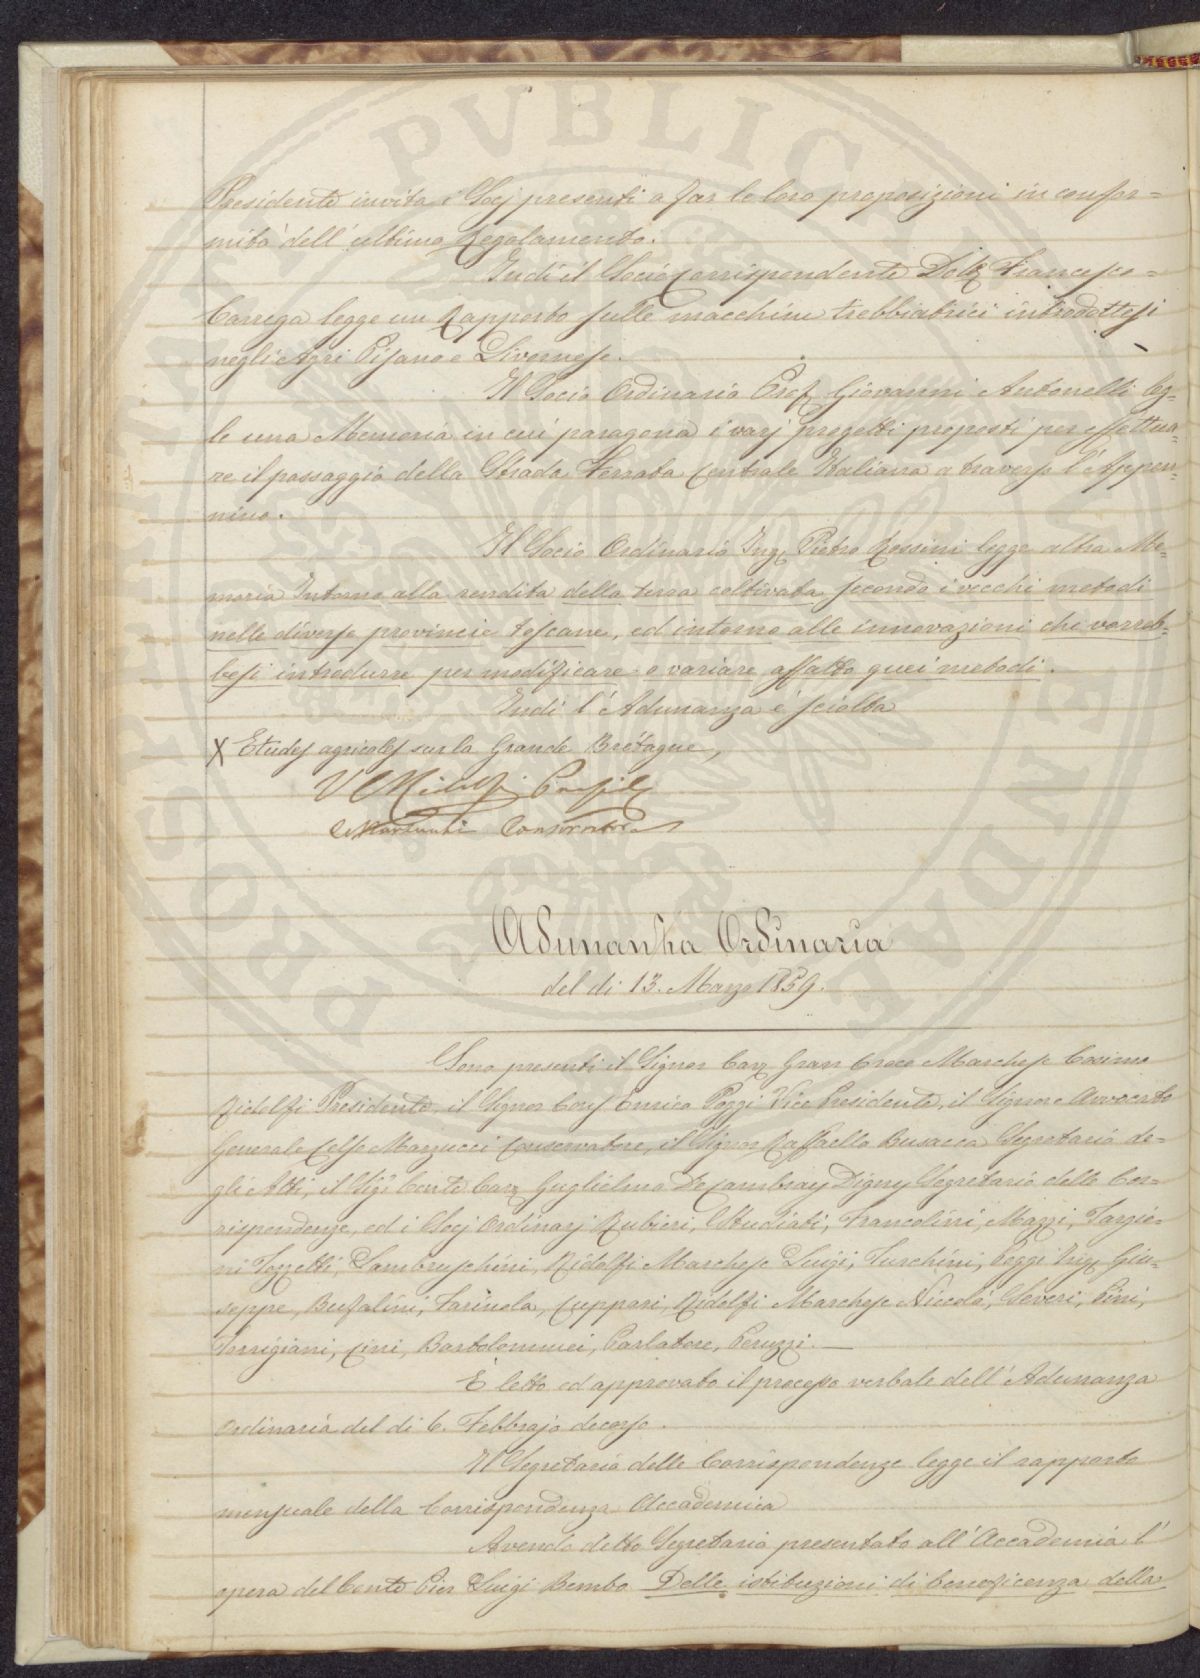 Presidente invita i Socj presenti a far le loro proposizioni in confor=
mità dell'ultimo Regolamento.
Indi il Socio Corrispondente Dott. Francesco
Carrega legge un Rapporto sulle macchine trebbiatrici introdottesi
negli Agri Pisano e Livornese.
Il Socio Ordinario Prof. Giovanni Antonelli leg=
le una Memoria in cui paragona i varj progetti proposti per effettua=
re il passaggio della Strada Ferrata Centrale Italiana a traverso l'Appen=
nino.
Il Socio Ordinario Ing. Pietro Rossini legge altra Me=
moria Intorno alla rendita della terra coltivata secondo i vecchi metodi
nelle diverse provincie toscane, ed intorno alle innovazioni che vorreb=
besi introdurre per modificare o variare affatto quei metodi.
Indi l'Adunanza è sciolta
X Etudes agricoles sur la Grande Brétagne,
V C Ridolfi
Conservatore
Adunanza Ordinaria
del di 13. Marzo 1859.
Sono presenti il Signor Cav. Gran Croce Marchese Cosimo
Ridolfi Presidente, il Signor Cons. Enrico Poggi Vice Presidente, il Signore Avvocato
Generale Celso Marzucci Conservatore, il Signor Raffaello Busacca Segretario de=
gli Atti, il Sig. Conte Cav. Guglielmo De Cambray Digny Segretario delle Cor=
rispondenze, ed i Socj Ordinarj Rubieri, Studiati, Francolini, Mazzi, Targio=
ni Tozzetti, Lambruschini, Ridolfi Marchese Luigi, Turchini, Poggi Ing. Giu=
seppe, Bufalini, Farinola, Cuppari, Ridolfi Marchese Niccolò, Severi, Pini,
Torrigiani, Cini, Bartolommei, Parlatore, Peruzzi.
È letto ed approvato il processo verbale dell'Adunanza
Ordinaria del di 6. Febbrajo decorso.
Il Segretario delle Corrispondenze legge il rapporto
mensuale della Corrispondenza Accademica
Avendo detto Segretario presentato all'Accademia l'
opera del Conte Pier Luigi Bembo Delle istituzioni di beneficenza della
PROSPERITATI PVBLICAE AVGENDAE